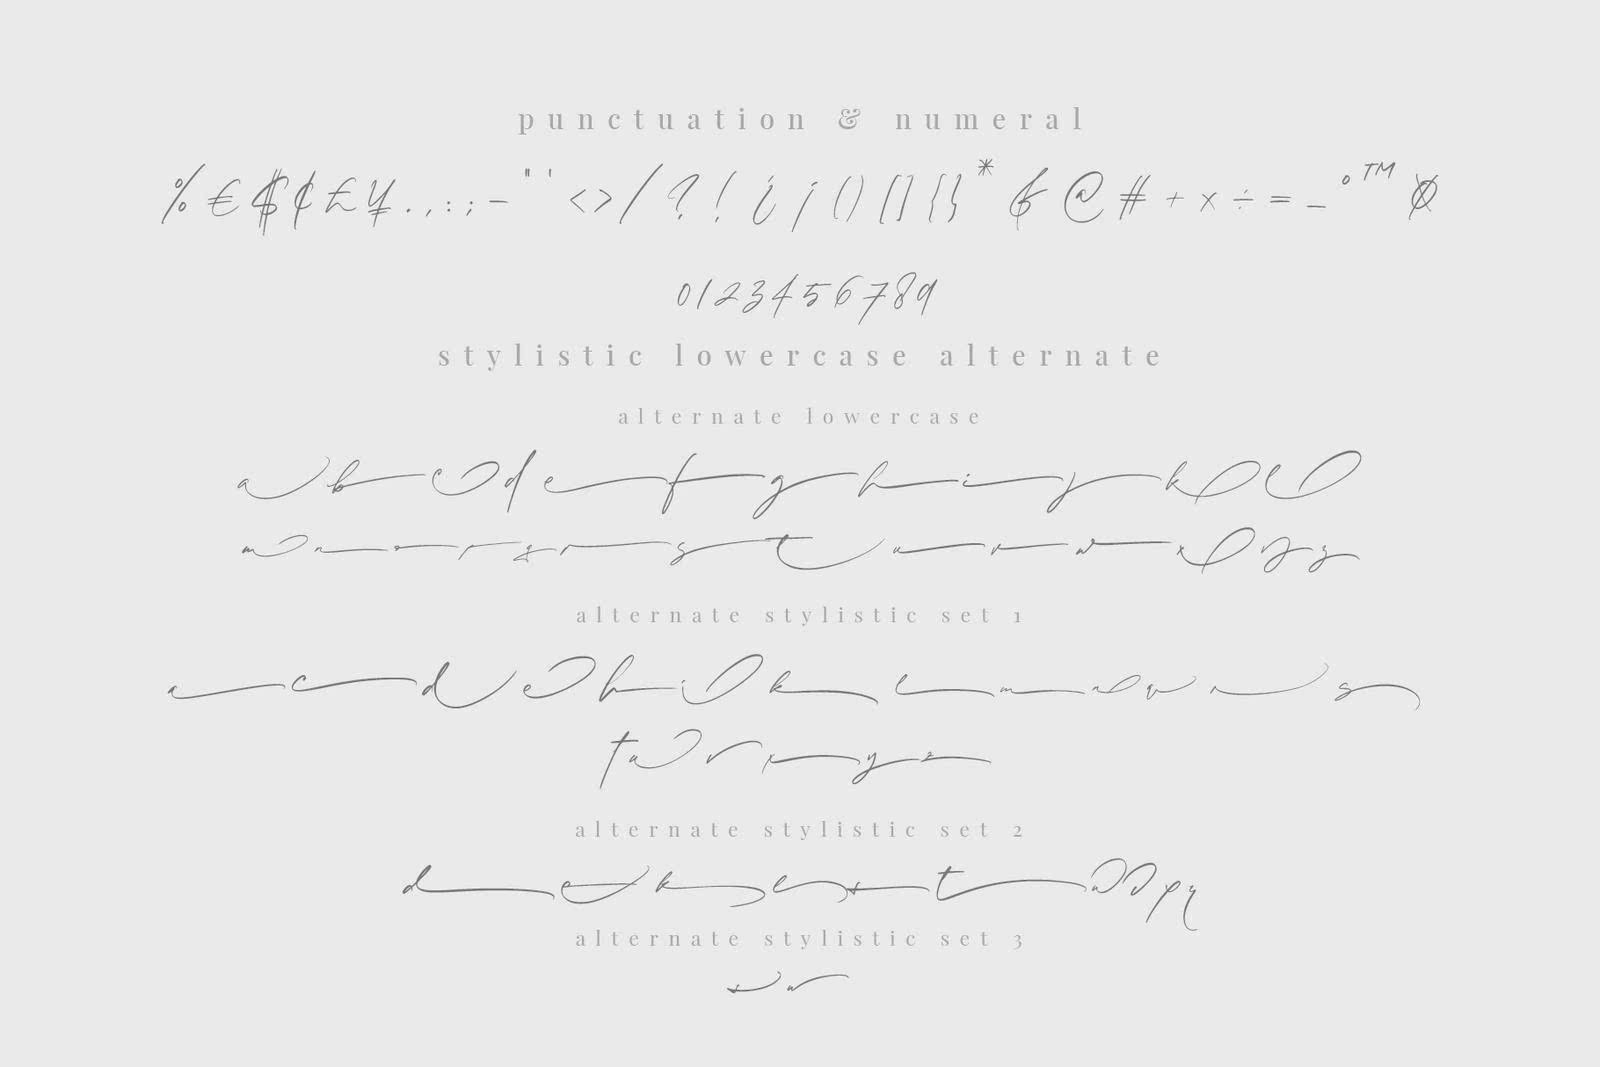 punctuation & numeral
% € $ ¢ £ ¥ . , : ; - " ' < > / ? ! ¿ ¡ ( ) [ ] { } * & @ # + × ÷ = _ ° ™ ¤
0123456789
stylistic lowercase alternate
alternate lowercase
a b c d e f g h i j k l
m n o p q r s t u v w x y z
alternate stylistic set 1
a c d e h i k l m n
t u v x y z
alternate stylistic set 2
d e k
alternate stylistic set 3